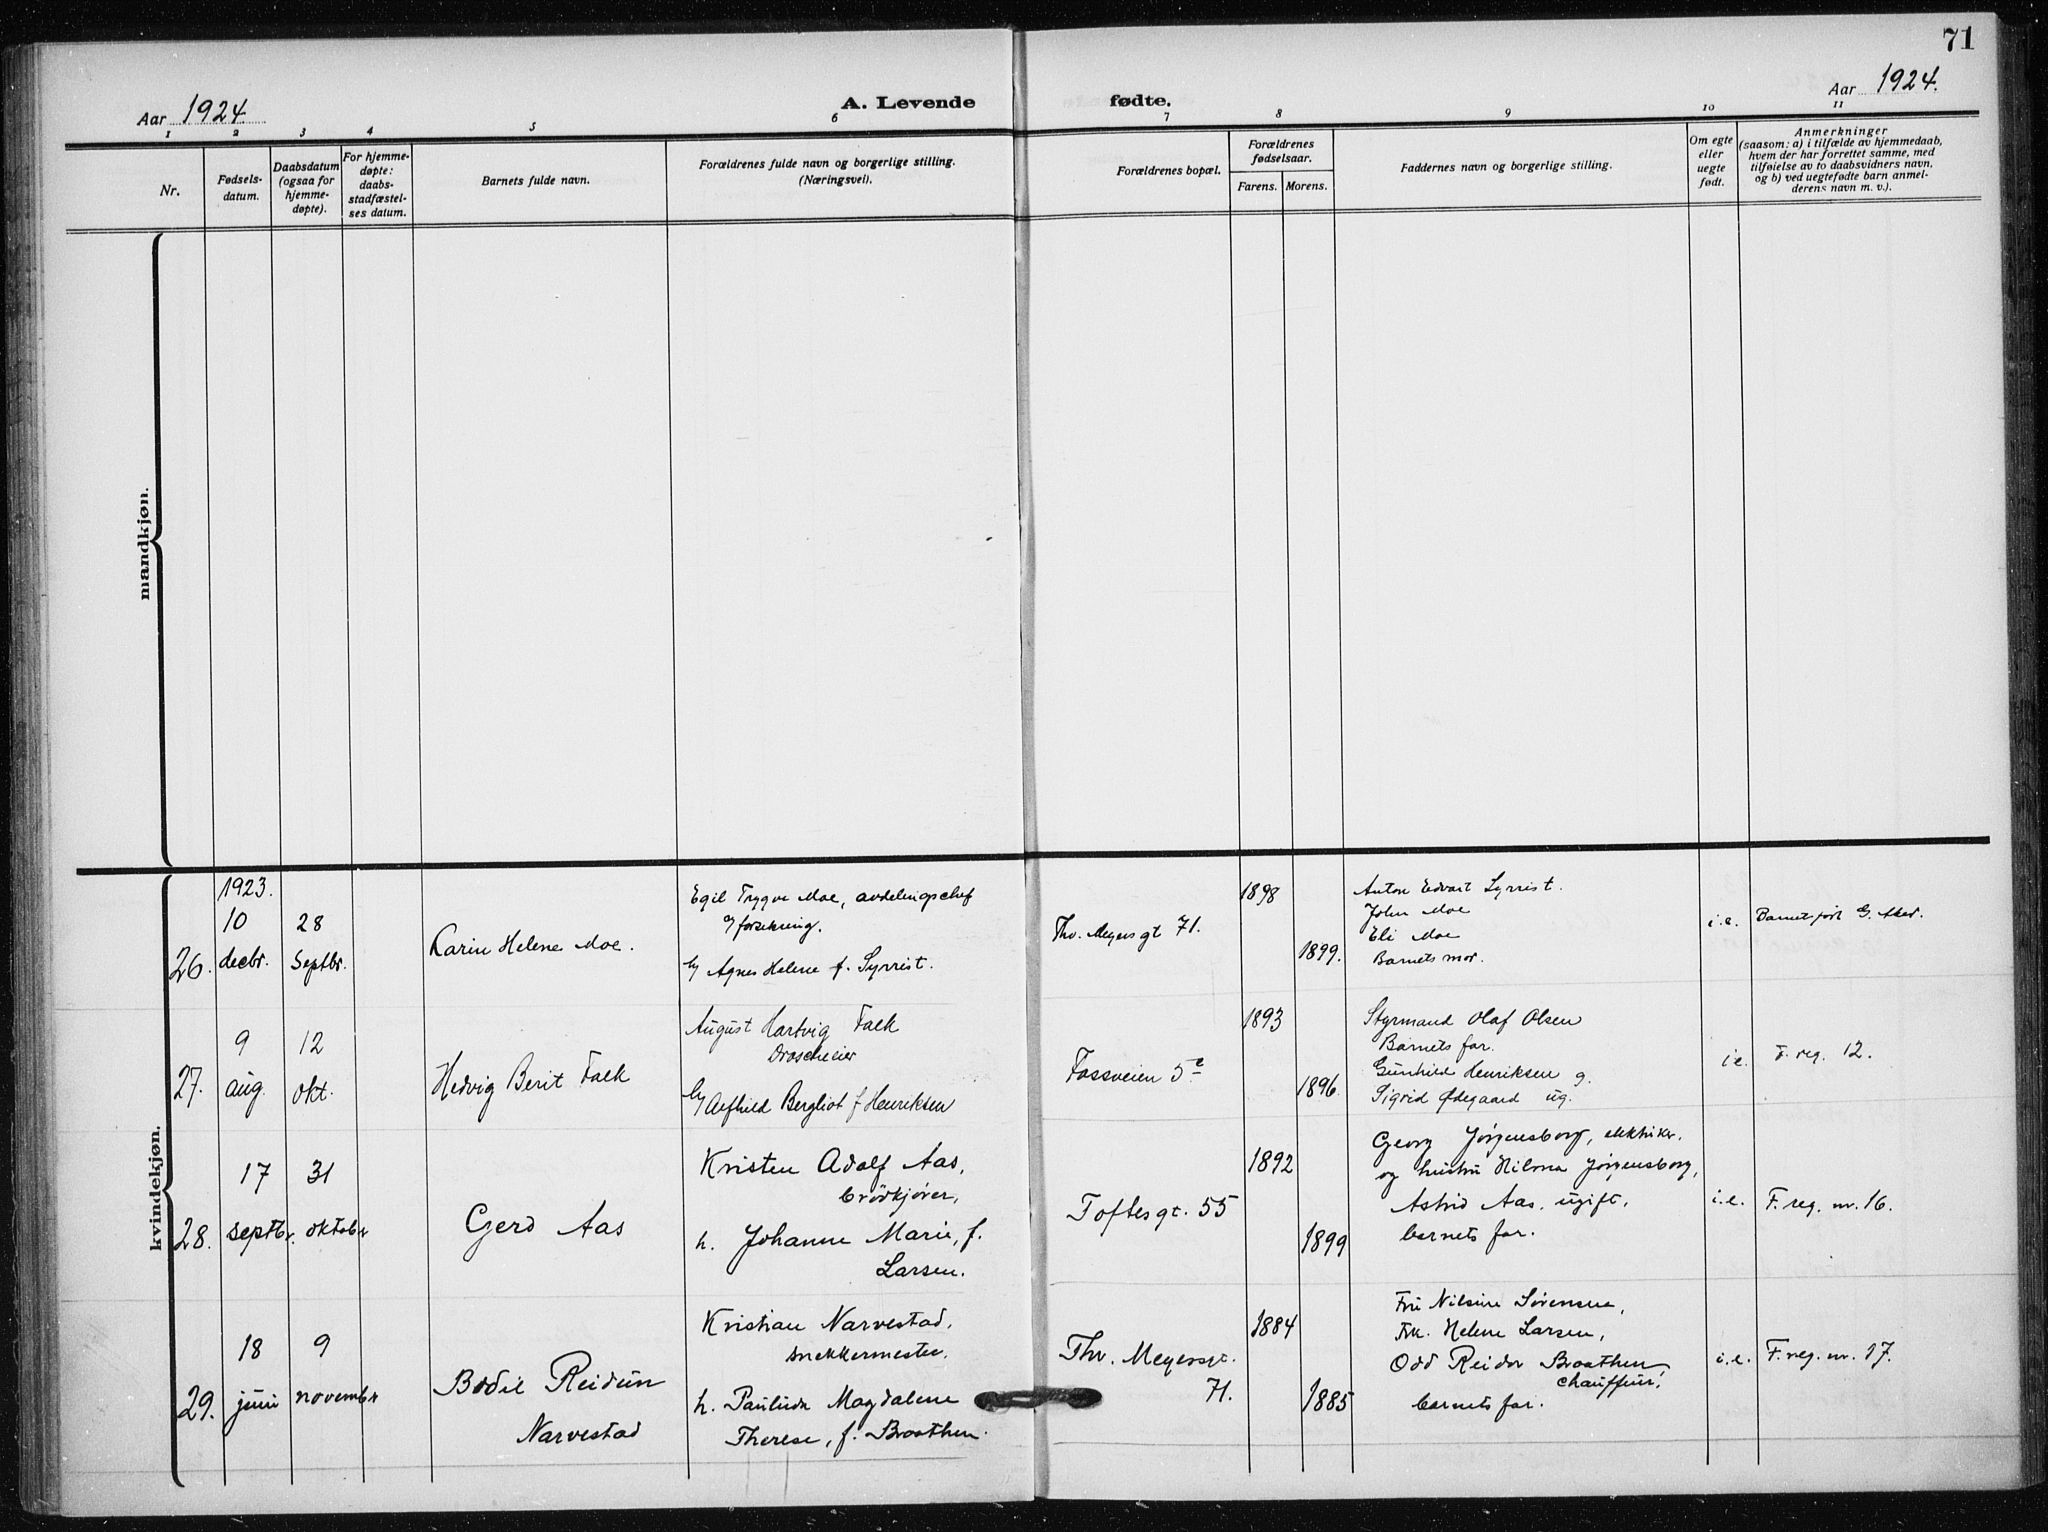 71
Aar 1924
A. Levende
fødte.
Aar 1924.
1 2 3 4 5 6 7 8 9 10 11
Nr.
Fødsels-
datum.
Daabsdatum
(ogsaa for
hjemme-
døpte).
For hjemme-
døpte:
daabs-
stadfæstel-
ses datum.
Barnets fulde navn.
Forældrenes fulde navn og borgerlige stilling.
(Næringsvei).
Forældrenes bopæl.
Forældrenes
fødselsaar.
Farens. Morens.
Faddernes navn og borgerlige stilling.
Om egte
eller
uegte
født.
Anmerkninger
(saasom: a) i tilfælde av hjemmedaab,
hvem der har forrettet samme, med
tilføielse av to daabsvidners navn,
og b) ved uegtefødte barn anmel-
derens navn m. v.).
mandkjøn.
kvindekjøn.
26.
1923.
10
decbr.
28
Septbr.
Karin Helene Moe.
Egil Trygve Moe, avdelingschef
forsikring.
Agnes Helene f. Syrrist.
Thv. Meyers gt 71.
1898
1899.
Anton Edvart Syrrist.
John Moe
Eli Moe
Barnets mor.
i.e.
Barnet ført G. Aker.
27.
9
aug.
12
okt.
Hedvig Berit Falk
August Hartvig Falk
Droscheeier
Alfhild Bergliot f Henriksen
Fossveien 5
1893
1896.
Styrmand Olaf Olsen
Barnets far.
Gunhild Henriksen g.
Sigrid Ødegaard ug.
i e.
F. reg. 12.
28.
17
septbr.
31
oktobr
Gerd Aas
Kristen Adolf Aas,
brødkjører,
h. Johanne Marie, f.
Larsen.
Toftesgt. 55
1892
1899
Georg Jørgensborg, elektriker.
og hustru Hilma Jørgensborg,
Astrid Aas, ugift,
barnets far.
i.e.
F. reg. nr. 16.
29.
18
juni
9
novembr
Bodil Reidun
Narvestad
Kristian Narvestad,
snekkermester.
h. Paulinda Magdalene
Therese, f. Braathen.
Thv. Meyersgt.
71.
1884
1885
Fru Nilsine Sørensen,
Frk. Helene Larsen,
Odd Reidar Braathen
chauffør,
barnets far.
i.e.
F. reg. nr. 17.